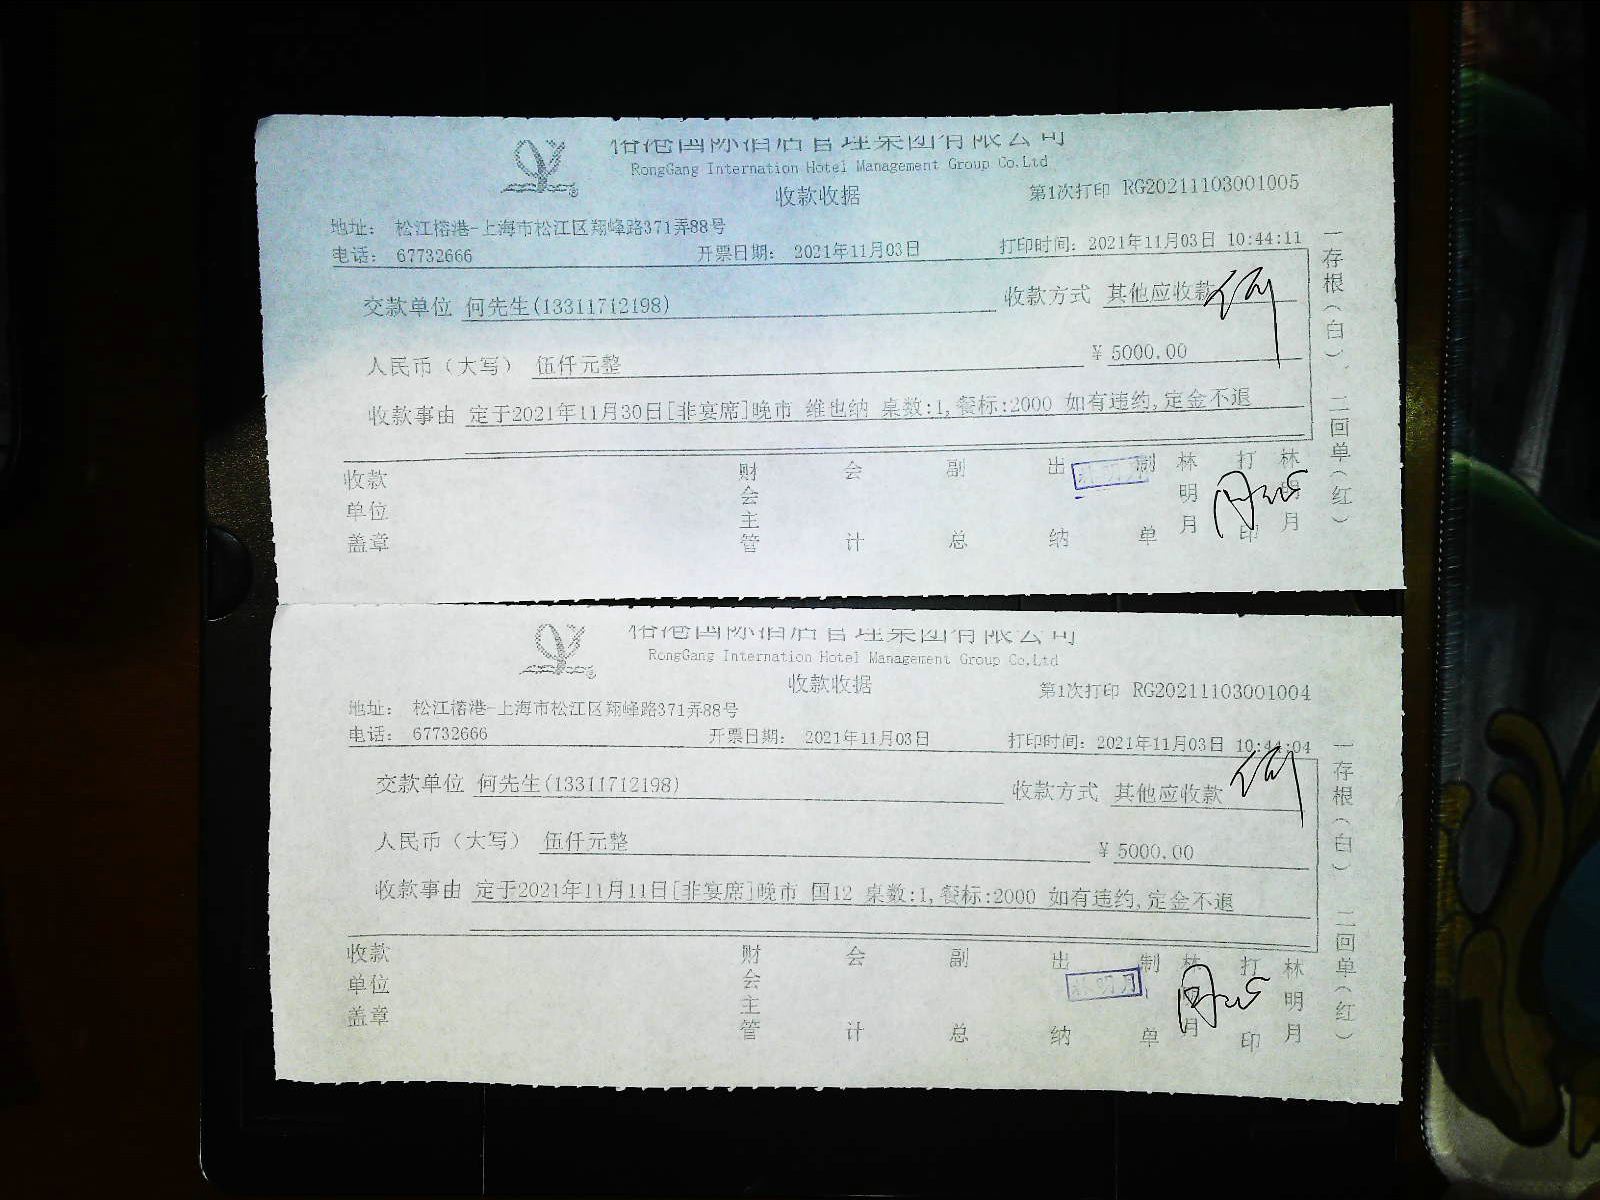 榕港国际酒店管理集团有限公司
RongGang Internation Hotel Management Group Co.Ltd
收款收据
第1次打印 RG20211103001005
地址： 松江榕港-上海市松江区翔峰路371弄88号
电话： 67732666 开票日期： 2021年11月03日 打印时间：2021年11月03日 10:44:11
交款单位 何先生(13311712198) 收款方式 其他应收款
人民币（大写） 伍仟元整 ¥ 5000.00
收款事由 定于2021年11月30日[非宴席]晚市 维也纳 桌数:1,餐标:2000 如有违约,定金不退
收款单位盖章 财会主管 会计 副总 出纳 制单 林明月 打印 林明月
一存根（白） 二回单（红）
榕港国际酒店管理集团有限公司
RongGang Internation Hotel Management Group Co.Ltd
收款收据
第1次打印 RG20211103001004
地址： 松江榕港-上海市松江区翔峰路371弄88号
电话： 67732666 开票日期： 2021年11月03日 打印时间：2021年11月03日 10:41:04
交款单位 何先生(13311712198) 收款方式 其他应收款
人民币（大写） 伍仟元整 ¥ 5000.00
收款事由 定于2021年11月11日[非宴席]晚市 国12 桌数:1,餐标:2000 如有违约,定金不退
收款单位盖章 财会主管 会计 副总 出纳 林明月 制单 林明月 打印 林明月
一存根（白） 二回单（红）